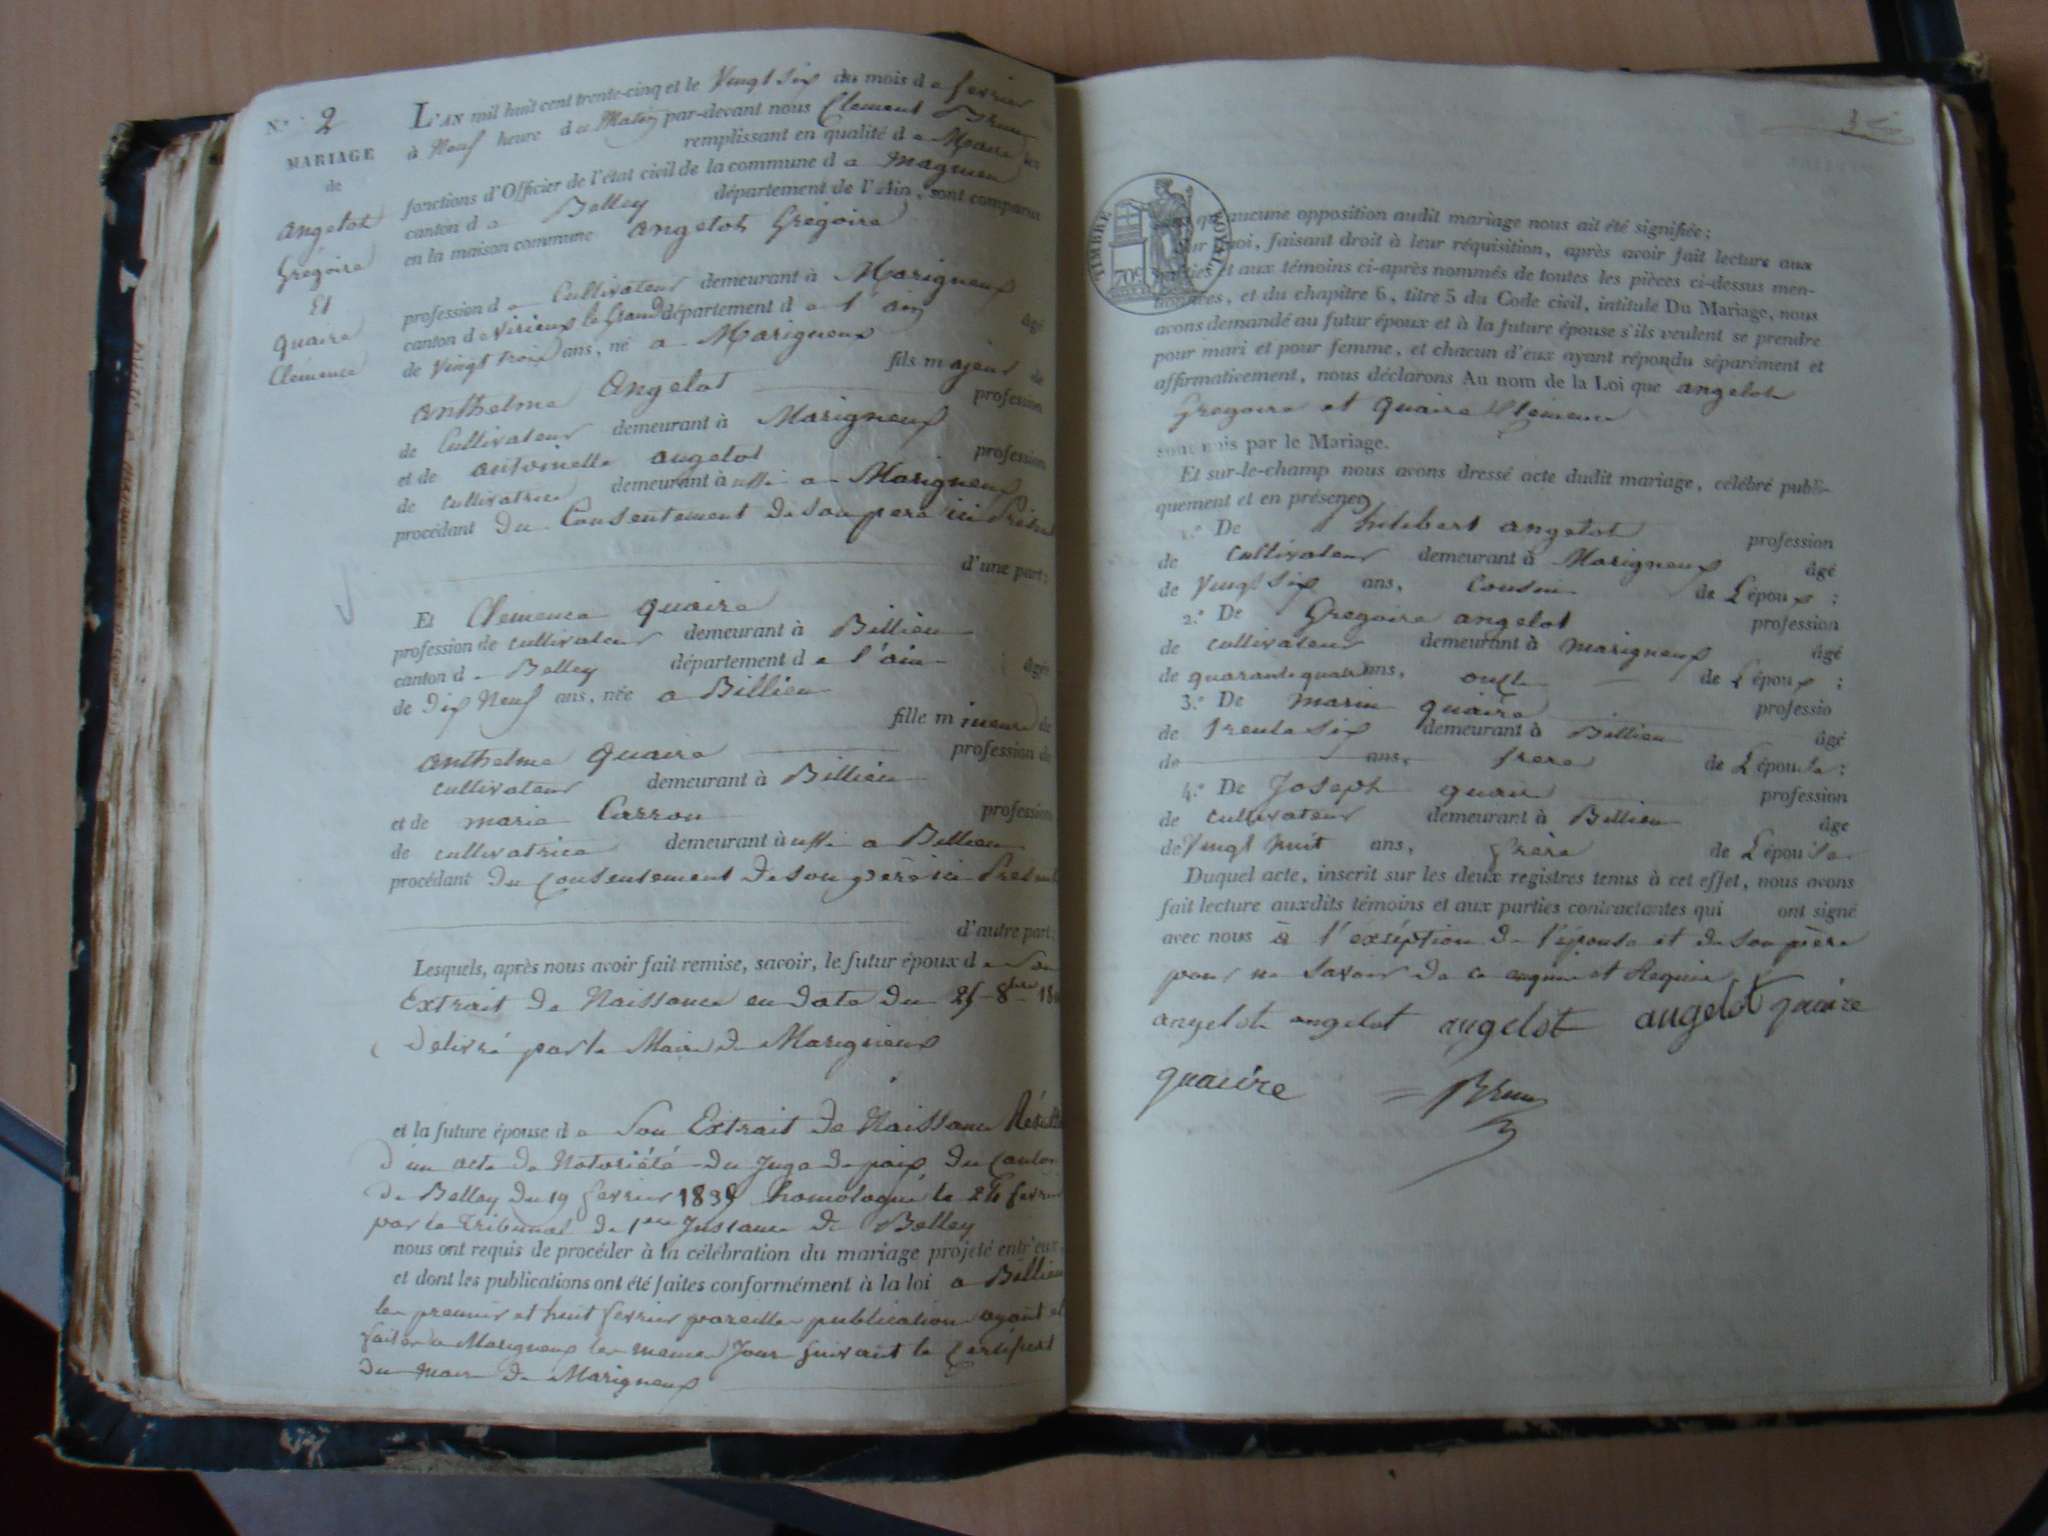 N.° 2
MARIAGE
de
Angelot
Grégoire
Et
Quaire
Clémence
L'AN mil huit cent trente-cinq et le Vingt Six du mois de fevrier
à Neuf heure du Matin par-devant nous Clement Brun
remplissant en qualité de Maire les
fonctions d'Officier de l'état civil de la commune de
canton de Belley département de l'Ain, sont comparus
en la maison commune Angelot Grégoire
profession de Cultivateur demeurant à Marigneux
canton de Virieux le Grand département de l'ain âgé
de Vingt trois ans, né a Marigneux
fils majeur de
Anthelme Angelot profession
de Cultivateur demeurant à Marigneux
et de antoinette angelot profession
de cultivatrice demeurant à ussi a Marigneux
procédant du Consentement de son pere ici Présent
d'une part;
Et Clemence Quaire
profession de cultivateur demeurant à Billieu
canton de Belley département de l'ain âgée
de dix Neuf ans, née a Billieu
fille mineure de
Anthelme Quaire profession de
cultivateur demeurant à Billieu
et de marie Carron profession
de cultivatrice demeurant à ussi a Billieu
procédant du consentement de son père ici Présent
d'autre part;
Lesquels, après nous avoir fait remise, savoir, le futur époux de Son
Extrait de Naissance en date du 25 8bre
Delivré par le Maire de Marigneux
et la future épouse de Son Extrait de Naissance
d'un acte de Notoriété du Juge de paix du Canton
de Belley du 19 fevrier 1835 homologué le fevrier
par le Tribunal de 1ere Instance de Belley
nous ont requis de procéder à la célébration du mariage projeté entr'eux,
et dont les publications ont été faites conformément à la loi a Billieu
le premier et huit fevrier pareille publication ayant été
faite a Marigneux les meme Jour suivant le Certificat
du maire de Marigneux
TIMBRE ROYAL
70c
qu'aucune opposition audit mariage nous ait été signifiée;
faisant droit à leur réquisition, après avoir fait lecture aux
parties et aux témoins ci-après nommés de toutes les pièces ci-dessus men-
tionnées, et du chapitre 6, titre 5 du Code civil, intitulé Du Mariage, nous
avons demandé au futur époux et à la future épouse s'ils veulent se prendre
pour mari et pour femme, et chacun d'eux ayant répondu séparément et
affirmativement, nous déclarons Au nom de la Loi que angelot
Gregoire et Quaire Clemence
sont unis par le Mariage.
Et sur-le-champ nous avons dressé acte dudit mariage, célébré publi-
quement et en présence
1.° De Philibert angelot profession
de cultivateur demeurant à Marigneux âgé
de Vingt Six ans, Cousin de L'époux;
2.° De Gregoire angelot profession
de cultivateur demeurant à marigneux âgé
de quarante quatre ans, oncle de L'époux;
3.° De marin quaire professio
de trente Six demeurant à Billieu âgé
de ans, frere de L'épouse;
4.° De Joseph quaire profession
de cultivateur demeurant à Billieu âgé
de Vingt huit ans, frère de L'épouse
Duquel acte, inscrit sur les deux registres tenus à cet effet, nous avons
fait lecture auxdits témoins et aux parties contractantes qui ont signé
avec nous à l'exséption de l'épouse et de son père
pour ne Savoir de ce enquis et Requis
angelot angelot angelot angelot quaire
quaire Brun